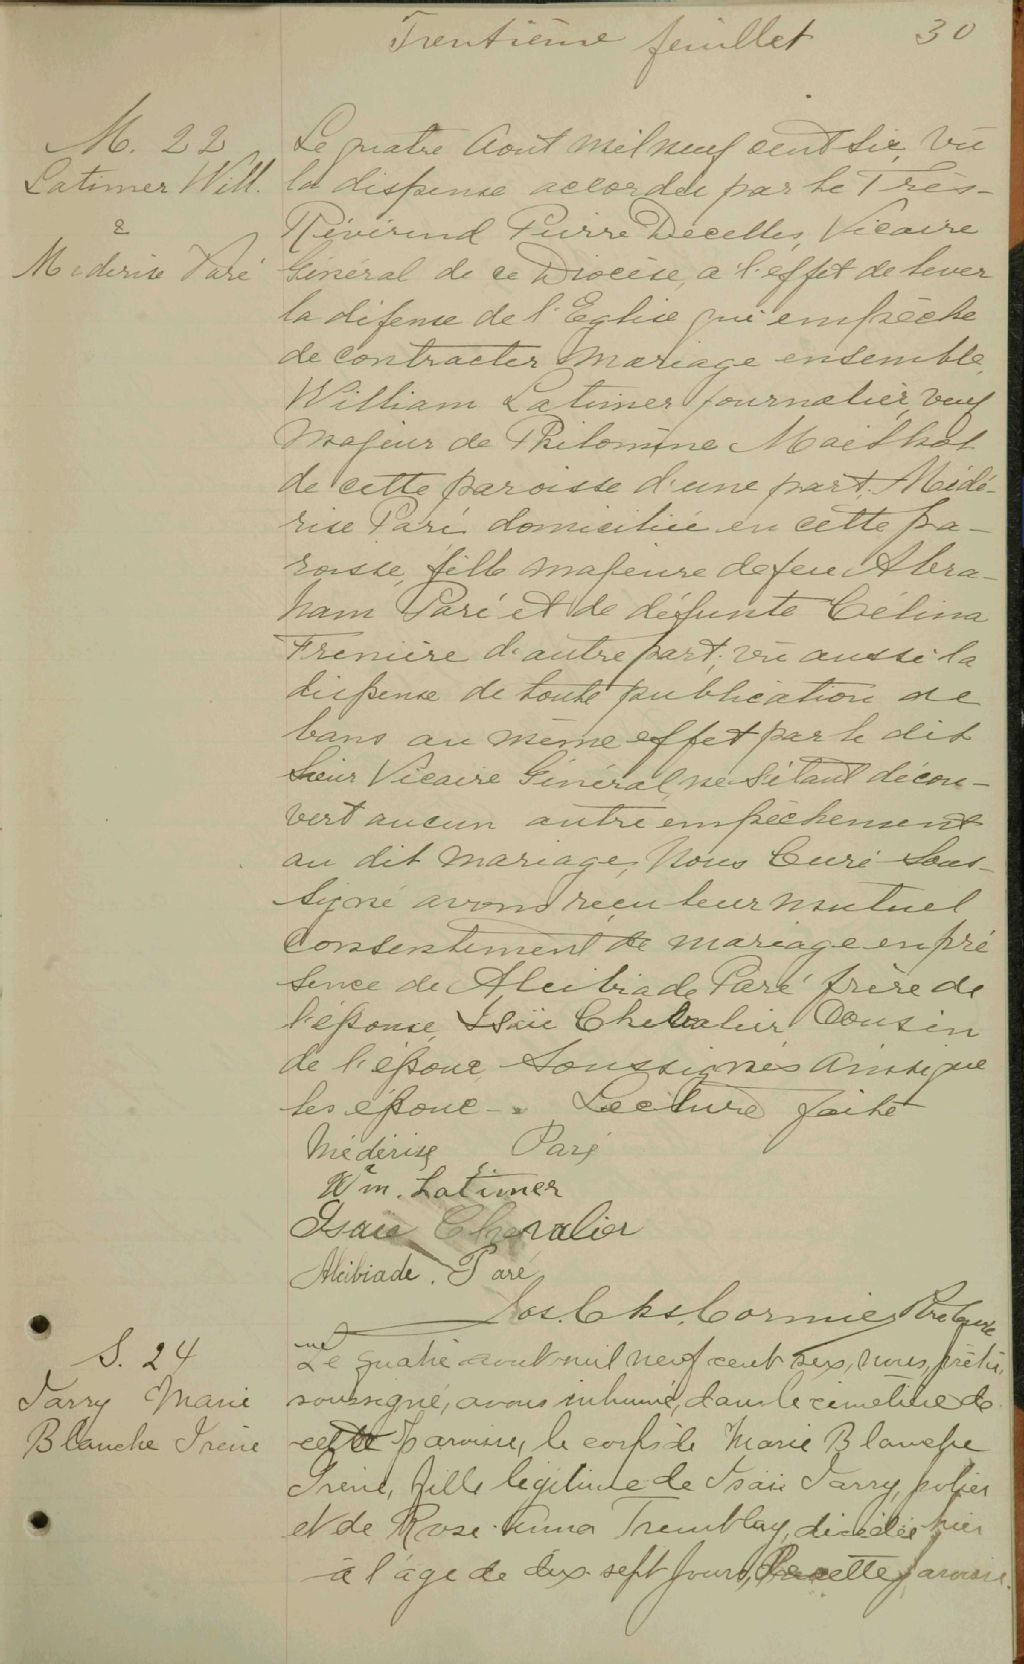 Trentième feuillet 30
M. 22
Latimer Will.
&
Mederise Paré
Le quatre Aout mil neuf cent six, vu
la dispense accordée par le Très-
Révérend Pierre Decelles, Vicaire
Général de ce Diocèse, a l'effet de lever
la défense de l'Eglise qui empêche
de contracter mariage ensemble,
William Latimer journalier, veuf
majeur de Philomène Mailhot
de cette paroisse d'une part, Médé-
rise Paré domiciliée en cette pa-
roisse, fille majeure de feu Abra-
ham Paré et de défunte Célina
Frenière d'autre part; vu aussi la
dispense de toute publication de
bans au même effet par le dit
Sieur Vicaire Général, ne s'étant décou-
vert aucun autre empêchement
au dit mariage, Nous Curé Sous-
signé avons reçu leur mutuel
consentement de mariage en pré
sence de Alcibiade Paré frère de
l'épouse, Isaïe Chevalier Cousin
de l'époux Soussignés ainsi que
les époux -. Lecture faite
Médérise Paré
Wm. Latimer
Isaïe Chevalier
Alcibiade. Paré
Jos. Chs. Cormier Ptre Curé
S. 24
Tarry Marie
Blanche Irène
Le quatre aout mil neuf cent six, nous, prêtre
soussigné, avons inhumé, dans le cimetière de
cette paroisse, le corps de Marie Blanche
Irène, fille légitime de Isaïe Tarry, potier
et de Rose-Anna Tremblay, décédée hier
à l'âge de dix-sept jours, de cette paroisse.